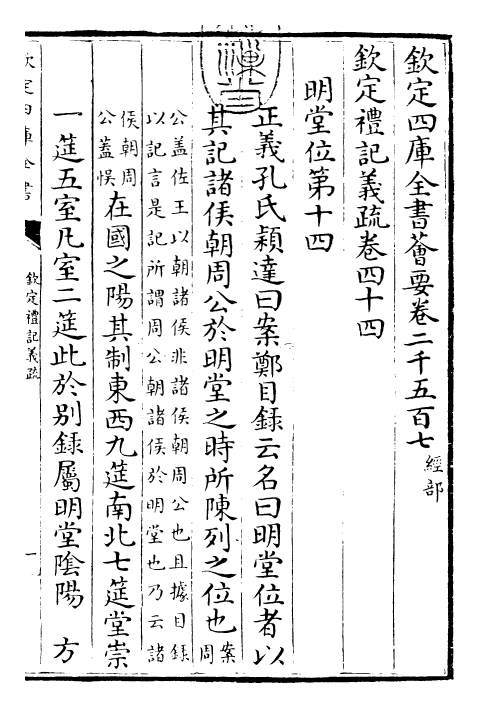 欽定四庫全書薈要卷二千五百七經部
欽定禮記義疏卷四十四
明堂位第十四
正義孔氏穎達曰案鄭目錄云名曰明堂位者以
其記諸侯朝周公於明堂之時所陳列之位也案周
公盖佐王以朝諸侯非諸侯朝周公也且據目錄
以記言是記所謂周公朝諸侯於明堂也乃云諸
侯朝周
公蓋悞
在國之陽其制東西九筵南北七筵堂崇
一筵五室凡室二筵此於别錄屬明堂陰陽 方
欽定四庫全書
欽定禮記義疏
一